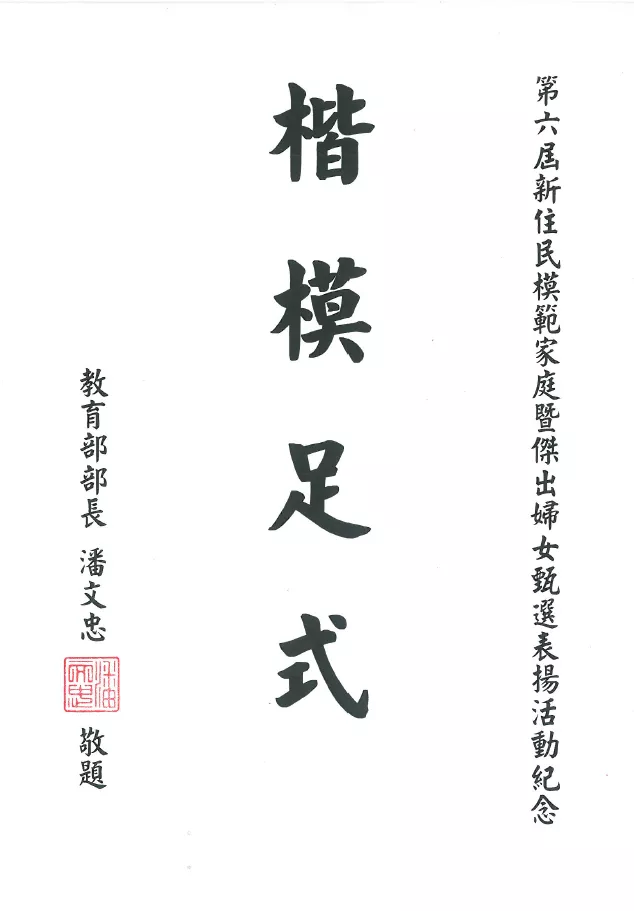 第六屆新住民模範家庭暨傑出婦女甄選表揚活動紀念
楷模足式
教育部部長 潘文忠
潘文忠
敬題